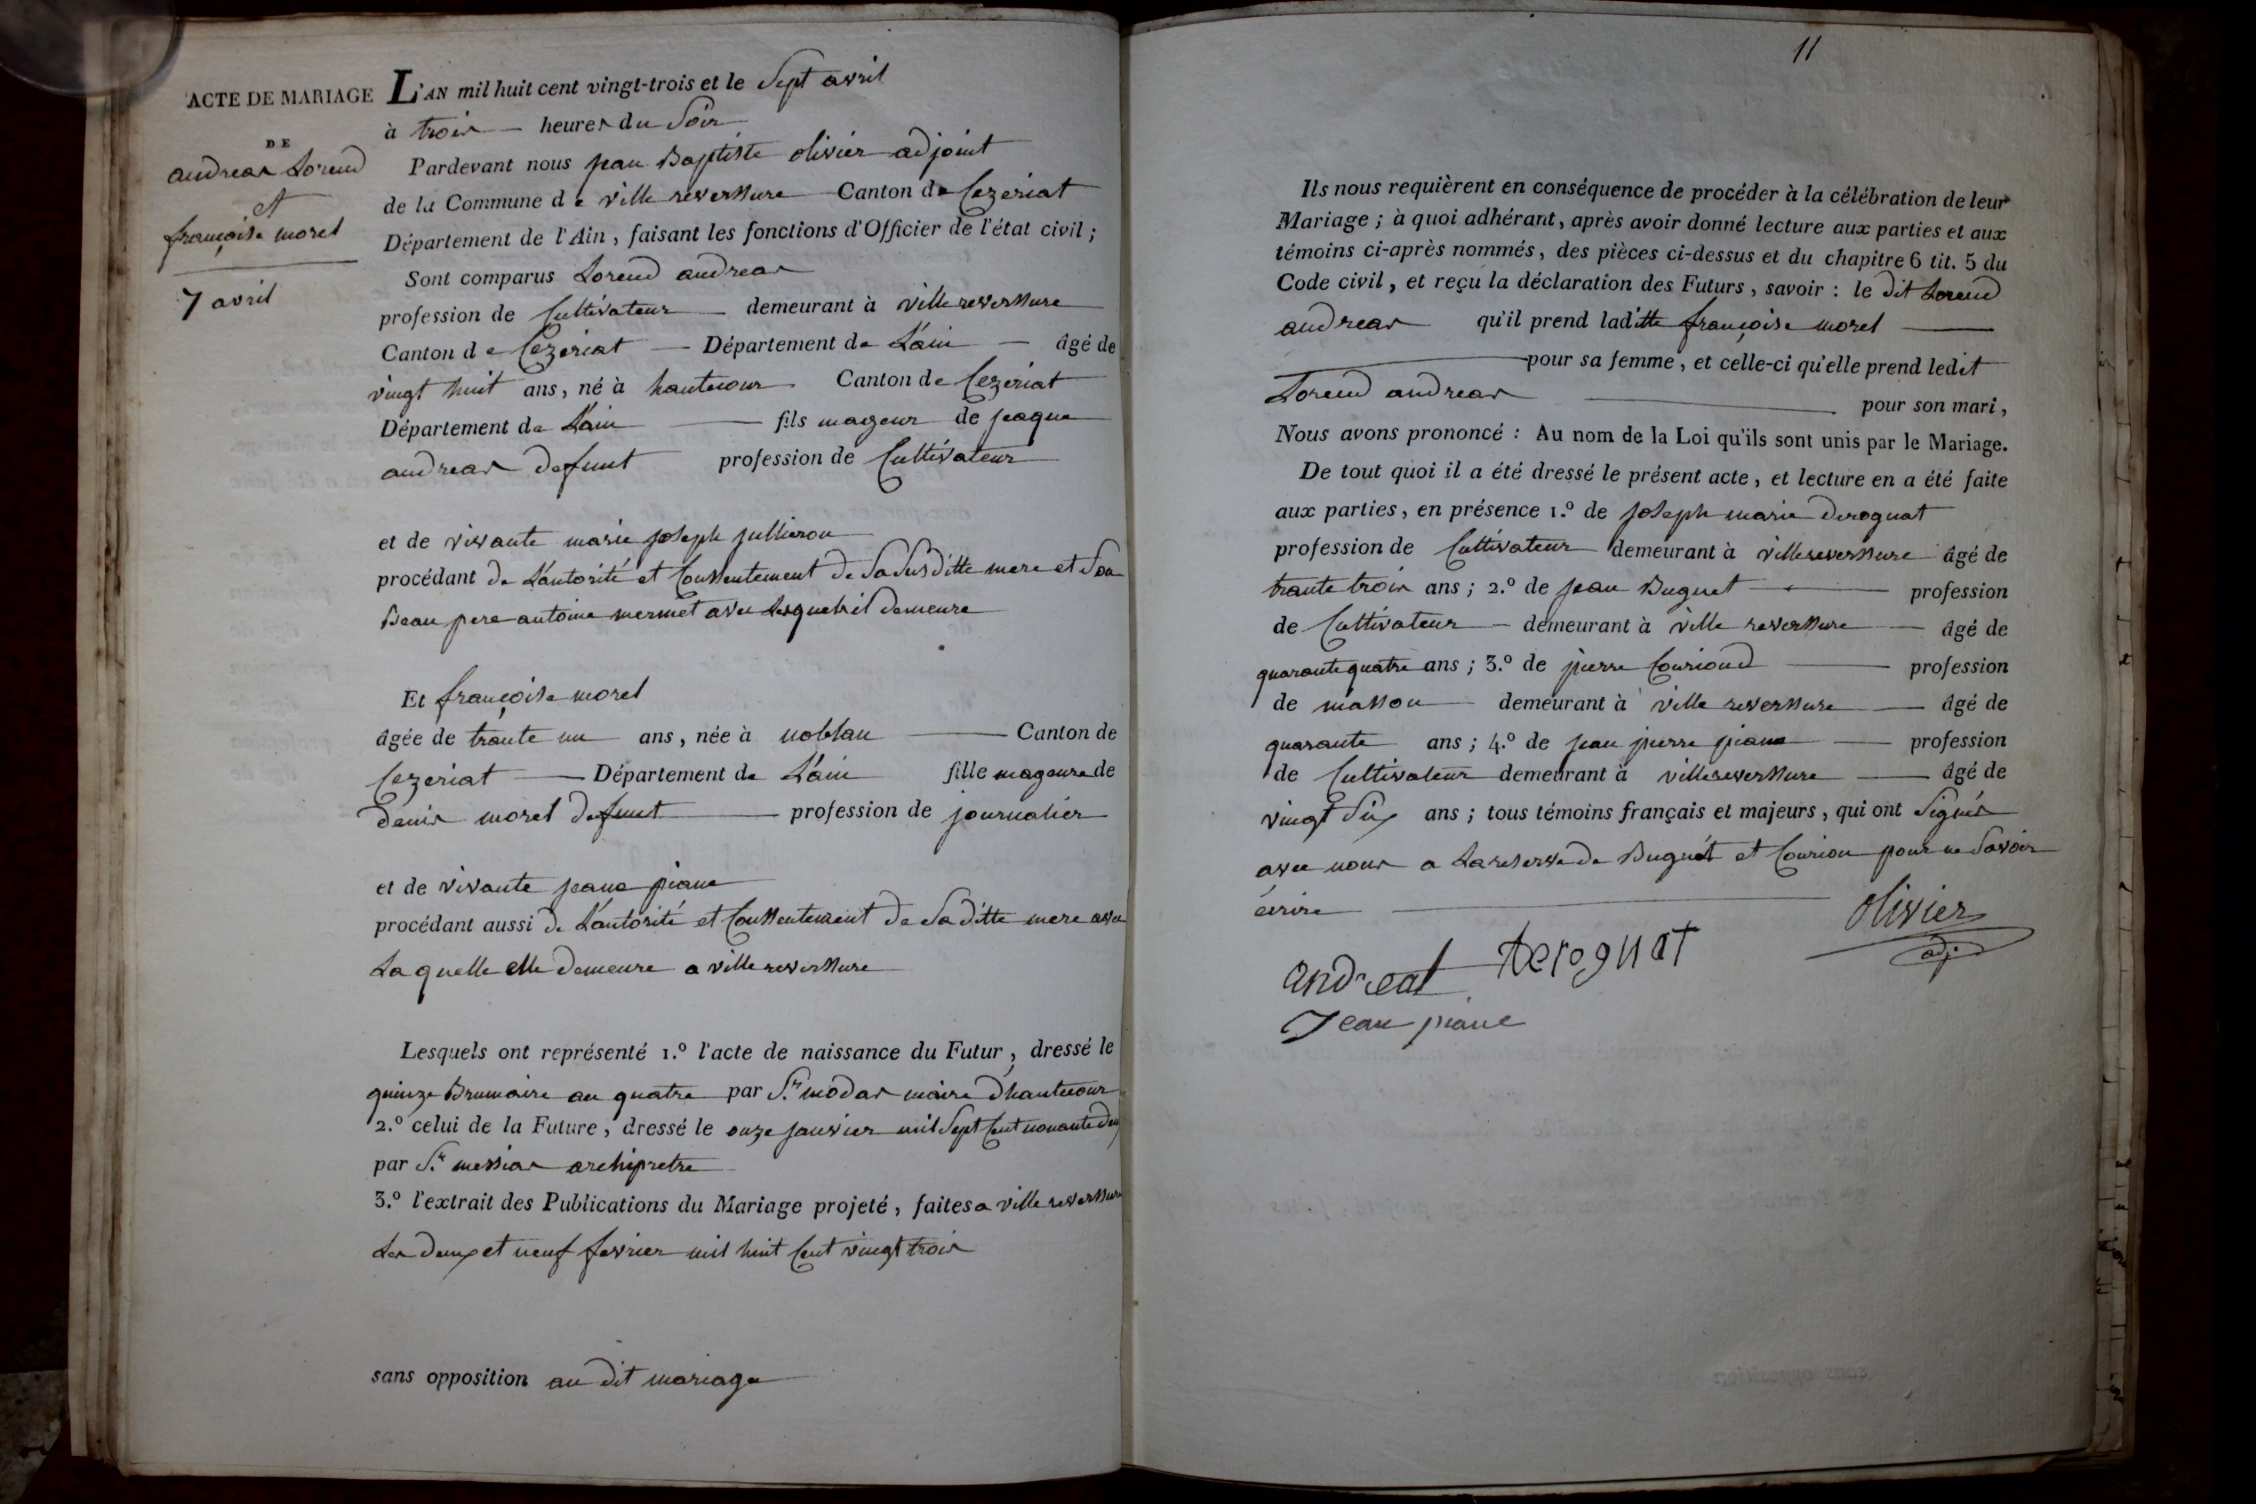 ACTE DE MARIAGE
DE
andreas Lorend
et
françoise morel
7 avril
L'AN mil huit cent vingt-trois et le Sept avril
à trois heures du Soir
Pardevant nous jean Baptiste olivier adjoint
de la Commune de ville reverssure Canton de Cezeriat
Département de l'Ain, faisant les fonctions d'Officier de l'état civil;
Sont comparus Lorend andreas
profession de Cultivateur demeurant à ville reverssure
Canton de Cezeriat Département de L'ain âgé de
vingt huit ans, né à hautecour Canton de Cezeriat
Département de L'ain fils mageur de jeaque
andreas defunt profession de Cultivateur
et de vivante marie joseph jullieron
procédant de L'autorité et Conssentement de Sa Susditte mere et Son
Beau pere antoine mermet avec Lesquels il demeure
Et françoise morel
âgée de trante un ans, née à noblan Canton de
Cezeriat Département de L'ain fille mageure de
denis morel defunt profession de journalier
et de vivante jeane piane
procédant aussi de L'autorité et Conssentement de Sa ditte mere avec
La quelle elle demeure a ville reverssure
Lesquels ont représenté 1.º l'acte de naissance du Futur, dressé le
quinze Brumaire an quatre par S.r modas maire dhautecour
2.º celui de la Future, dressé le onze janvier mil Sept Cent nonante deux
par S.r messias archipretre
3.º l'extrait des Publications du Mariage projeté, faites a ville reverssure
Les deux et neuf fevrier mil huit Cent vingt trois
sans opposition au dit mariage
11
Ils nous requièrent en conséquence de procéder à la célébration de leur
Mariage; à quoi adhérant, après avoir donné lecture aux parties et aux
témoins ci-après nommés, des pièces ci-dessus et du chapitre 6 tit. 5 du
Code civil, et reçu la déclaration des Futurs, savoir: le dit Lorend
andreas qu'il prend laditte françoise morel
pour sa femme, et celle-ci qu'elle prend ledit
Lorend andreas pour son mari,
Nous avons prononcé: Au nom de la Loi qu'ils sont unis par le Mariage.
De tout quoi il a été dressé le présent acte, et lecture en a été faite
aux parties, en présence 1.º de joseph marie derognat
profession de Cultivateur demeurant à ville reverssure âgé de
trante trois ans; 2.º de jean Buguet profession
de Cultivateur demeurant à ville reverssure âgé de
quarante quatre ans; 3.º de pierre Couriond profession
de masson demeurant à ville reverssure âgé de
quarante ans; 4.º de jean pierre piane profession
de Cultivateur demeurant à ville reverssure âgé de
vingt Six ans; tous témoins français et majeurs, qui ont Signés
avec nous a La reserve de Buguet et Courion pour ne Savoir
écrire
olivier
adj.
andreal Derognat
Jean piane